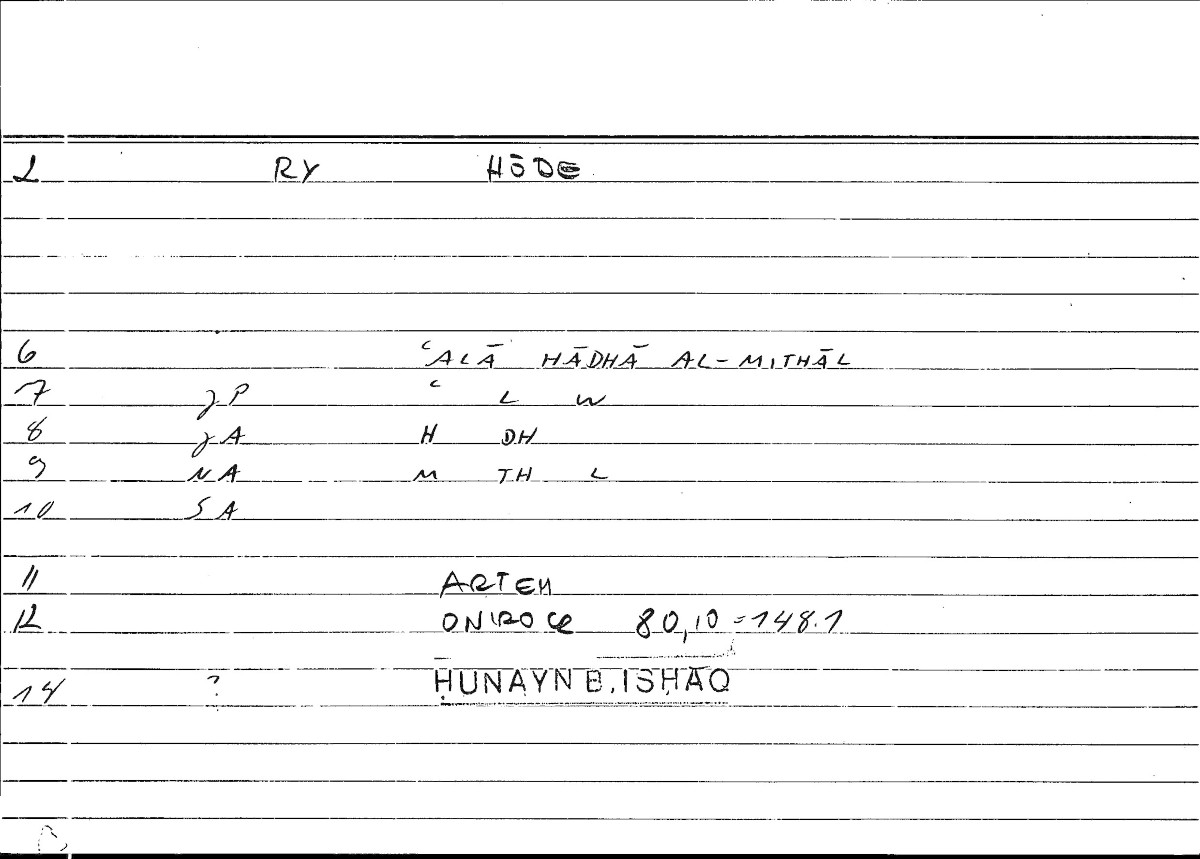 2 RY HŌDE
6 ʿALĀ HĀDHĀ AL-MITHĀL
7 γP ʿ L W
8 γA H DH
9 NA M TH L
10 SA
11 ARTEM
12 ONIROCR 80,10 = 148.1
14 ? ḤUNAYN B. ISḤĀQ